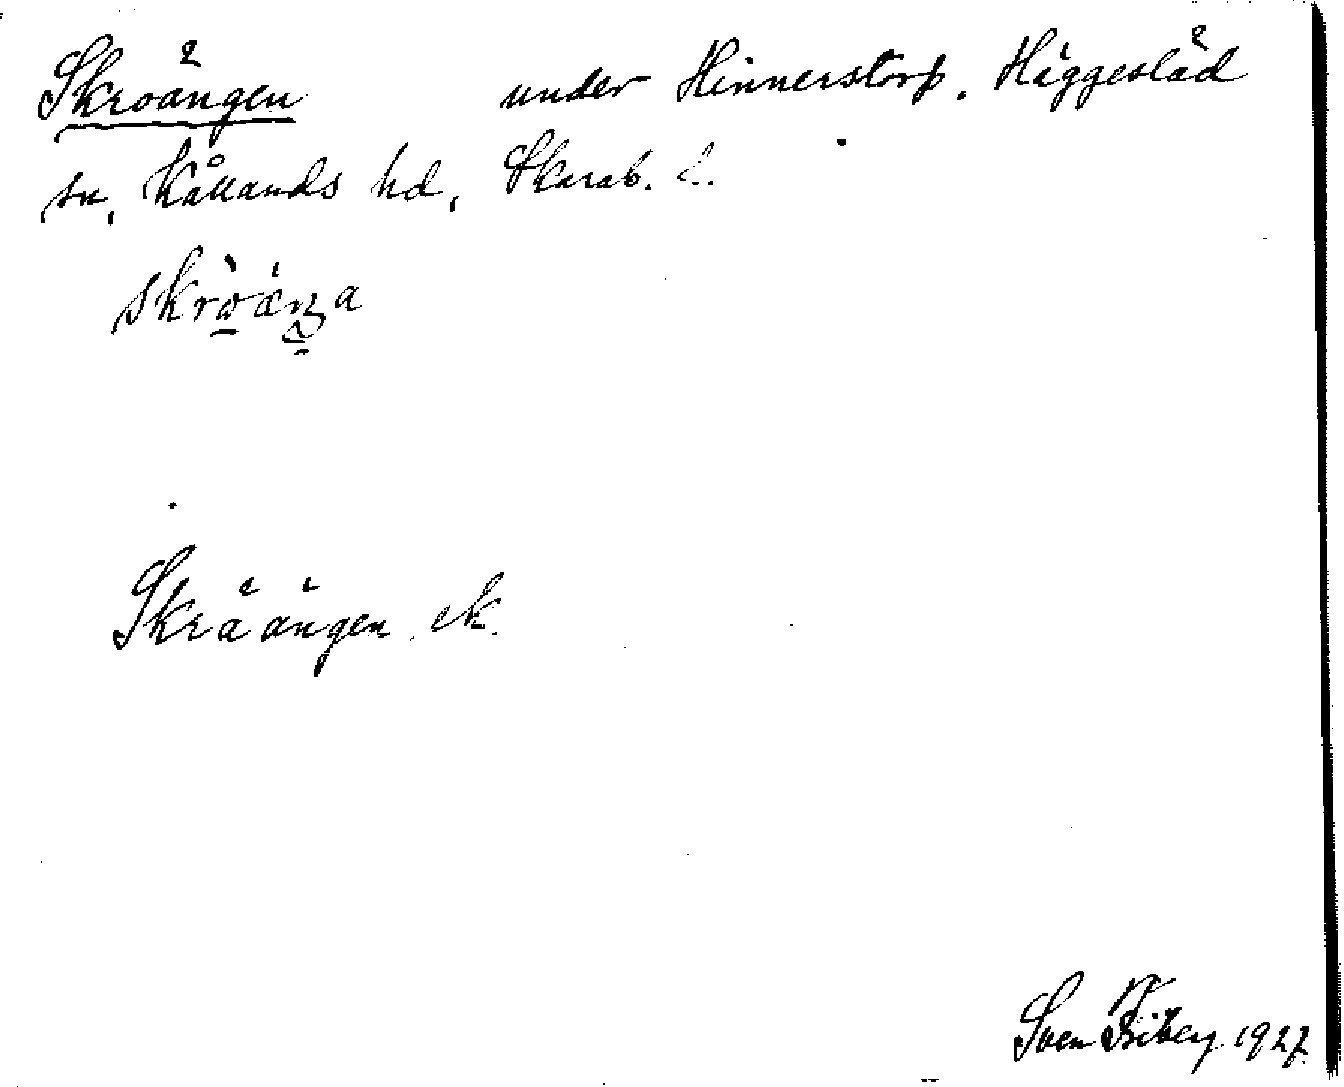 Skroängen under Hinnerstorp, Häggesläd
sn, Kållands hd, Skarab. l.
Skräängen ek.
Sven Friberg 1927